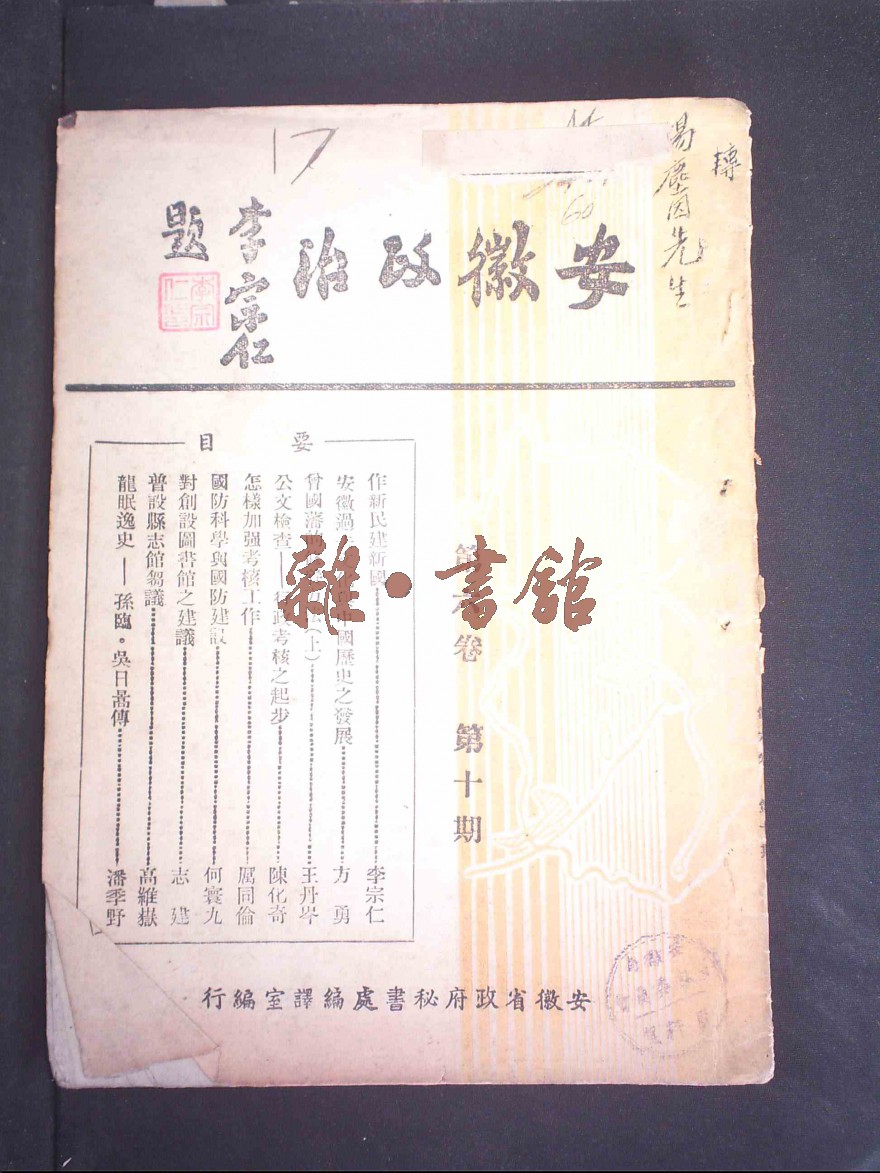 轉
湯塵因先生
17
安徽政治
李宗仁
題
李宗
仁
第六卷 第十期
要目
作新民建新國 李宗仁
安徽過 中國歷史之發展 方勇
曾國藩 (上) 王丹岑
公文檢查——行政考核之起步 陳化奇
怎樣加强考核工作 厲同倫
國防科學與國防建設 何寰九
對創設圖書館之建議 志建
普設縣志館芻議 高維嶽
龍眠逸史——孫臨·吳日昺傳 潘季野
雜·書館
安徽省政府秘書處編譯室編行